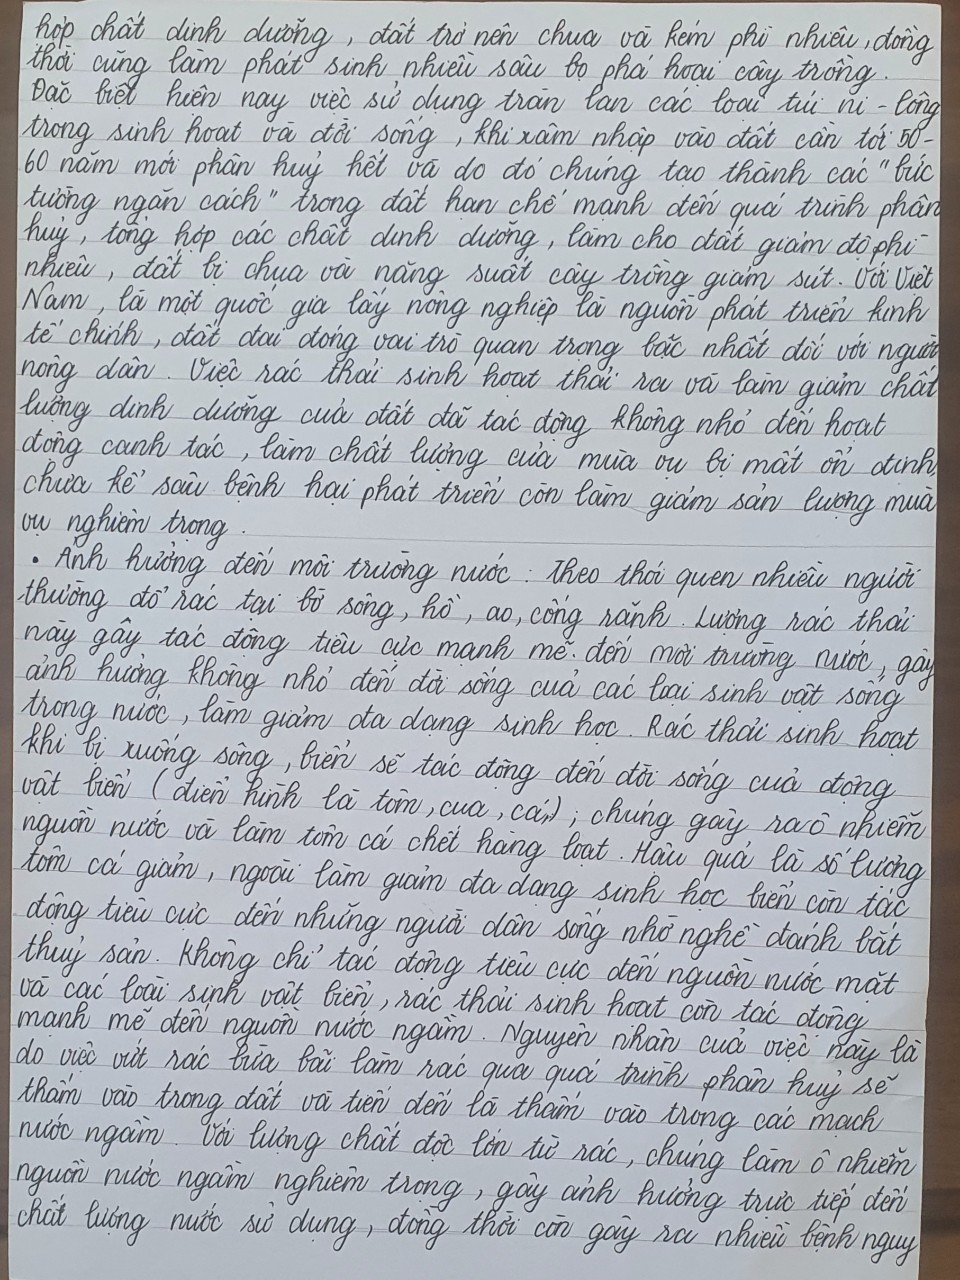 hợp chất dinh dưỡng, đất trở nên chua và kém phì nhiêu, đồng
thời cũng làm phát sinh nhiều sâu bọ phá hoại cây trồng.
Đặc biệt hiện nay việc sử dụng tràn lan các loại túi ni-lông
trong sinh hoạt và đời sống, khi xâm nhập vào đất cần tới 50-
60 năm mới phân huỷ hết và do đó chúng tạo thành các "bức
tường ngăn cách" trong đất hạn chế mạnh đến quá trình phân
huỷ, tổng hợp các chất dinh dưỡng, làm cho đất giảm độ phì
nhiêu, đất bị chua và năng suất cây trồng giảm sút. Với Việt
Nam, là một quốc gia lấy nông nghiệp là nguồn phát triển kinh
tế chính, đất đai đóng vai trò quan trọng bậc nhất đối với người
nông dân. Việc rác thải sinh hoạt thải ra và làm giảm chất
lượng dinh dưỡng của đất đã tác động không nhỏ đến hoạt
động canh tác, làm chất lượng của mùa vụ bị mất ổn định
chưa kể sâu bệnh hại phát triển còn làm giảm sản lượng mùa
vụ nghiêm trọng.
• Ảnh hưởng đến môi trường nước: Theo thói quen nhiều người
thường đổ rác tại bờ sông, hồ, ao, cống rãnh. Lượng rác thải
này gây tác động tiêu cực mạnh mẽ đến môi trường nước, gây
ảnh hưởng không nhỏ đến đời sống của các loại sinh vật sống
trong nước, làm giảm đa dạng sinh học. Rác thải sinh hoạt
khi bị xuống sông, biển sẽ tác động đến đời sống của động
vật biển (điển hình là tôm, cua, cá,..); chúng gây ra ô nhiễm
nguồn nước và làm tôm cá chết hàng loạt. Hậu quả là số lượng
tôm cá giảm, ngoài làm giảm đa dạng sinh học biển còn tác
động tiêu cực đến những người dân sống nhờ nghề đánh bắt
thuỷ sản. Không chỉ tác động tiêu cực đến nguồn nước mặt
và các loài sinh vật biển, rác thải sinh hoạt còn tác động
mạnh mẽ đến nguồn nước ngầm. Nguyên nhân của việc này là
do việc vứt rác bừa bãi làm rác qua quá trình phân huỷ sẽ
thấm vào trong đất và tiến đến là thấm vào trong các mạch
nước ngầm. Với lượng chất độc lớn từ rác, chúng làm ô nhiễm
nguồn nước ngầm nghiêm trọng, gây ảnh hưởng trực tiếp đến
chất lượng nước sử dụng, đồng thời còn gây ra nhiều bệnh nguy